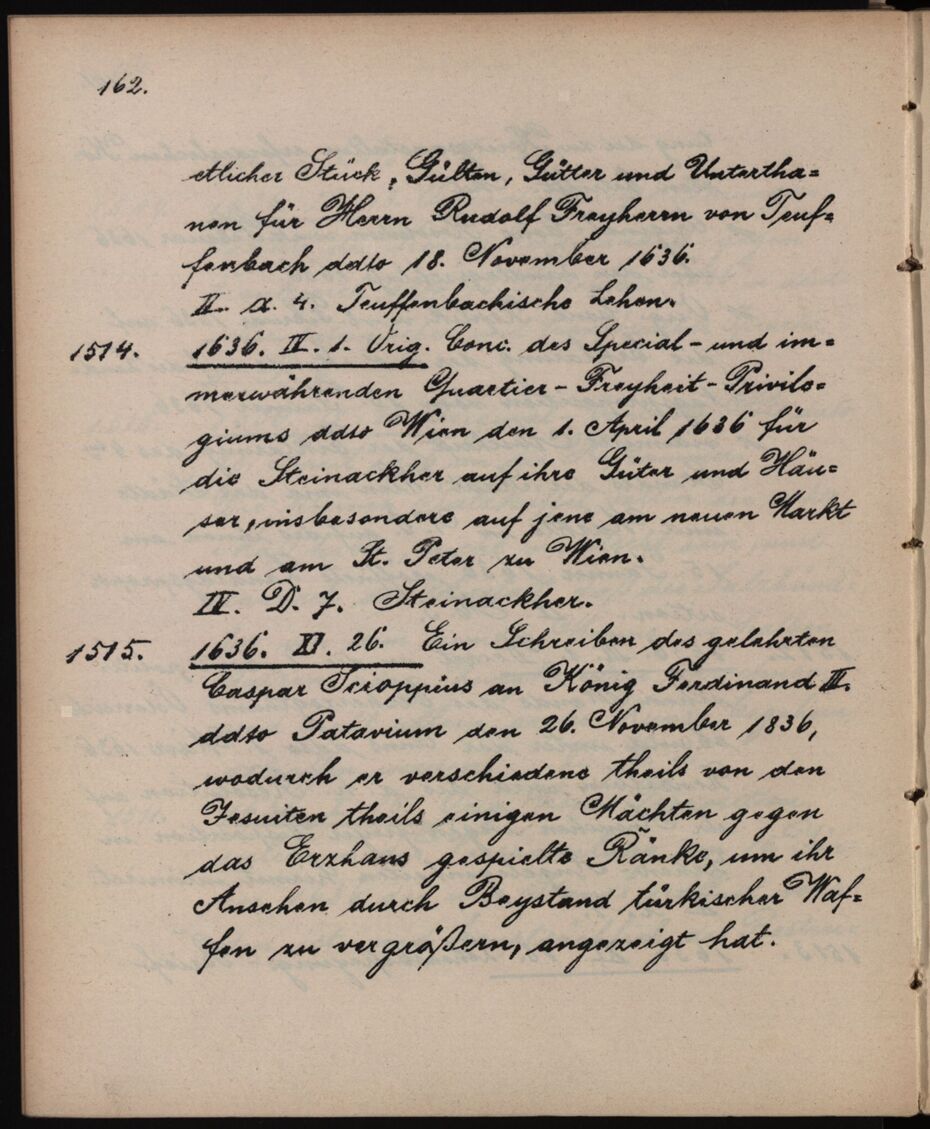 162.
etlicher Stück, Gülten, Gütter und Untertha=
nen für Herrn Rudolf Freyherrn von Teuf=
fenbach ddto 18. November 1636.
II. a. 4. Teuffenbachische Lehen.
1514. 1636. IV. 1. Orig. Conc. des Special- und im=
merwährenden Quartier-Freyheit-Privile=
giums ddto Wien den 1. April 1636 für
die Steinackher auf ihre Güter und Häu=
ser, insbesondere auf jene am neuen Markt
und am St. Peter zu Wien.
IV. D. 7. Steinackher.
1515. 1636. XI. 26. Ein Schreiben des gelehrten
Caspar Scioppius an König Ferdinand III.
ddto Patavium den 26. November 1836,
wodurch er verschiedene theils von den
Jesuiten theils einigen Mächten gegen
das Erzhaus gespielte Ränke, um ihr
Ansehen durch Beystand türkischer Waf=
fen zu vergrößern, angezeigt hat.